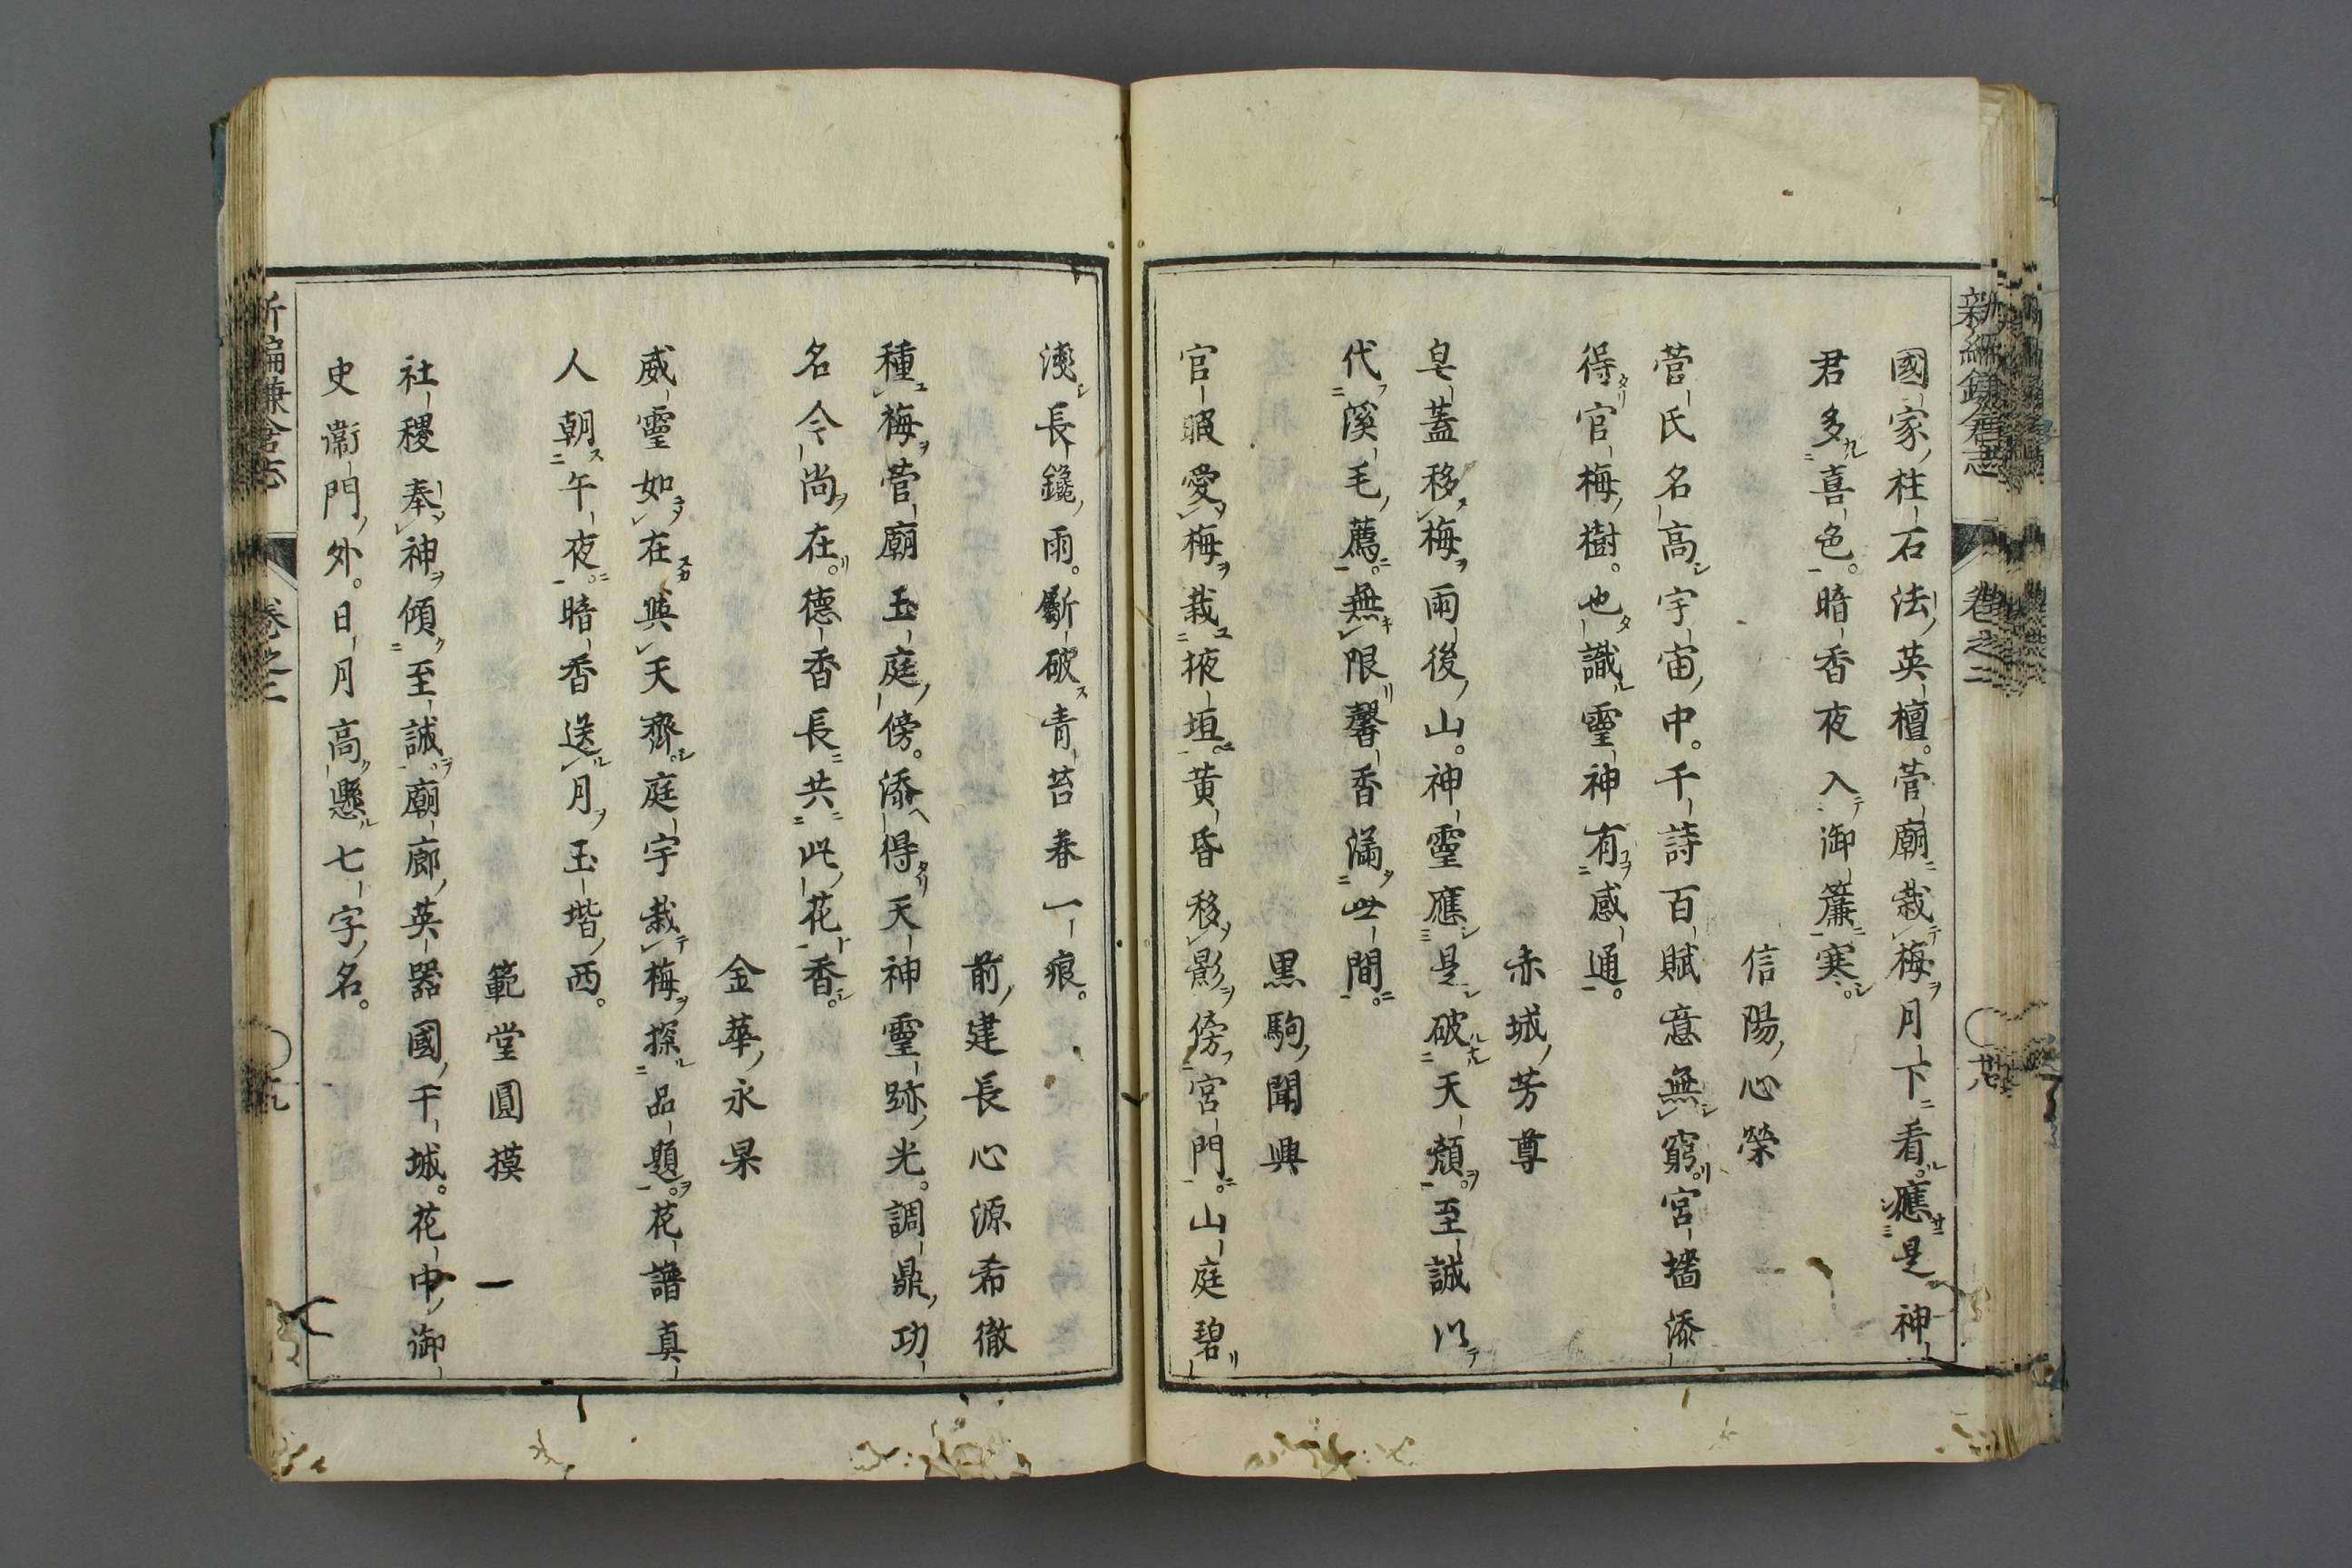 新編鎌倉志 卷之二 〇 廿八
國家柱石法英檀。菅廟栽梅月下看。應是神
君多喜色。暗香夜入御簾寒。
信陽心榮
菅氏名高宇宙中。千詩百賦意無窮。宮墻添
得官梅樹。也識靈神有感通。
赤城芳尊
皂蓋移梅雨後山。神靈應是破天顏。至誠以
代溪毛薦。無限馨香滿世間。
黒駒聞興
官暇愛梅栽掖垣。黄昏移影傍宮門。山庭碧
淺長鑱雨。斸破青苔春一痕。
前建長心源希徹
種梅菅廟玉庭傍。添得天神靈跡光。調鼎功
名今尚在。德香長共此花香。
金華永杲
威靈如在與天齊。庭宇栽梅探品題。花譜真
人朝午夜。暗香送月玉堦西。
範堂圓摸
社稷奉神傾至誠。廟廊英器國干城。花中御
史衞門外。日月高懸七字名。
新編鎌倉志 卷之二 〇